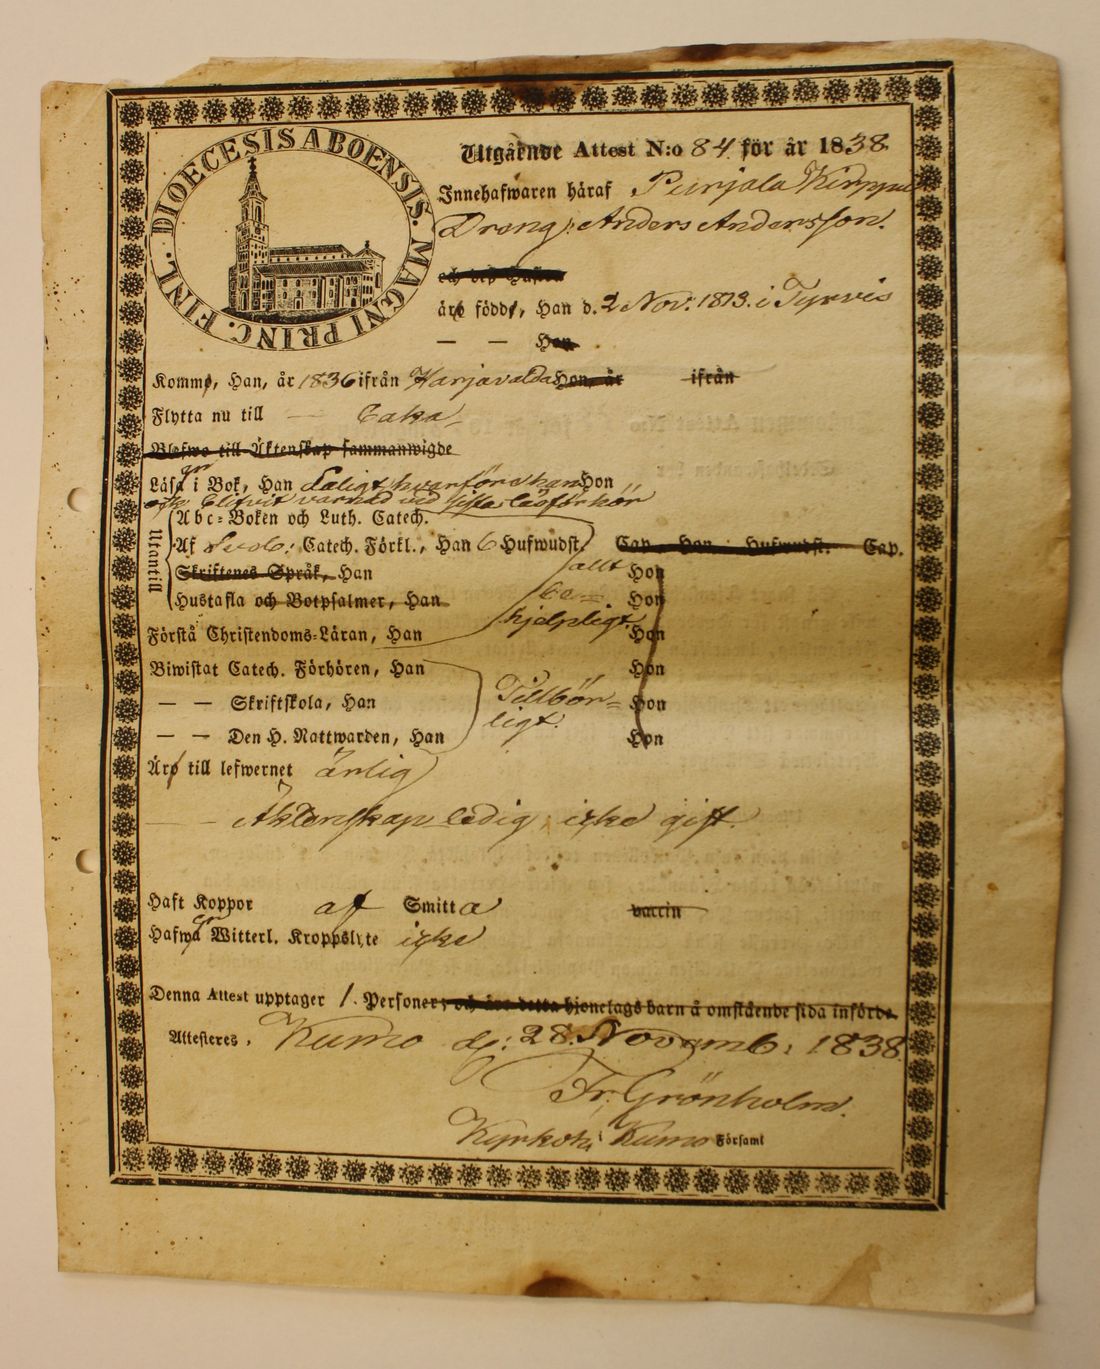 DIOECESIS ABOENSIS. MAGNI PRINC. FINL.
Utgående Attest N:o 84 för år 1838.
Innehafwaren häraf Purjala Kirppu
Dräng, Anders Andersson.
och dess Hustru
äro född, Han d. 2 Nov: 1813. i Tyrvis
— — Hon
Komm, Han, år 1836 ifrån Harjavalda Hon, år ifrån
Flytta nu till — Eaka
Blefwo till Äktenskap sammanwigde
Läsa i Bok, Han Daligt, hvarföre han Hon
ock blifvit varnad vid sista läsförhör
Utantill
Abc-Boken och Luth. Catech.
Af Sveb: Catech. Förkl., Han 6 Hufwudst. Cap. Hon Hufwudst. Cap.
Skriftenes Språk, Han allt Hon
Hustafla och Botpsalmer, Han be= Hon
Förstå Christendoms-Läran, Han hjelpligt. Hon
Biwistat Catech. Förhören, Han Hon
— — Skriftskola, Han Tillbör= Hon
ligt.
— — Den H. Nattwarden, Han Hon
Äro till lefwernet ärlig
Äktenskap ledig, icke gift.
Haft Koppor af Smitta vaccin
Hafwa Witterl. Kroppslyte icke
Denna Attest upptager 1. Personer; och äro detta hjonelags barn å omstående sida införde.
Attesteres, Kumo d: 28 Novemb: 1838
Fr. Grönholm.
Kyrkoh. i Kumo Församl